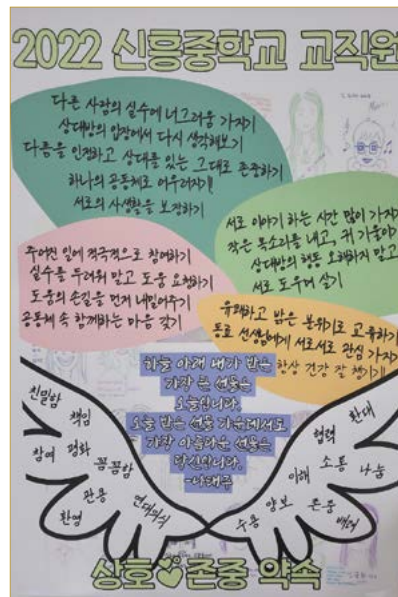 2022 신흥중학교 교직원
다른 사람의 실수에 너그러움 가지기
상대방의 입장에서 다시 생각해보기
다름을 인정하고 상대를 있는 그대로 존중하기
하나의 공동체로 어우러지기!!
서로의 사생활을 보장하기
서로 이야기 하는 시간 많이 가지기
작은 목소리를 내고, 귀 기울이기
상대방의 행동 오해하지 말고
서로 도우며 살기
주어진 일에 적극적으로 참여하기
실수를 두려워 말고 도움 요청하기
도움의 손길을 먼저 내밀어주기
공동체 속 함께하는 마음 갖기
유쾌하고 밝은 분위기로 교육하기
동료 선생님에게 서로서로 관심 가지기
항상 건강 잘 챙기기!!
하늘 아래 내가 받은
가장 큰 선물은
오늘입니다.
오늘 받은 선물 가운데서도
가장 아름다운 선물은
당신입니다.
-나태주
친밀함
책임
참여 평화
꼼꼼함
관용
환영
연대의식
환대
협력
소통 나눔
이해
존중
양보
수용
배려
상호 존중 약속